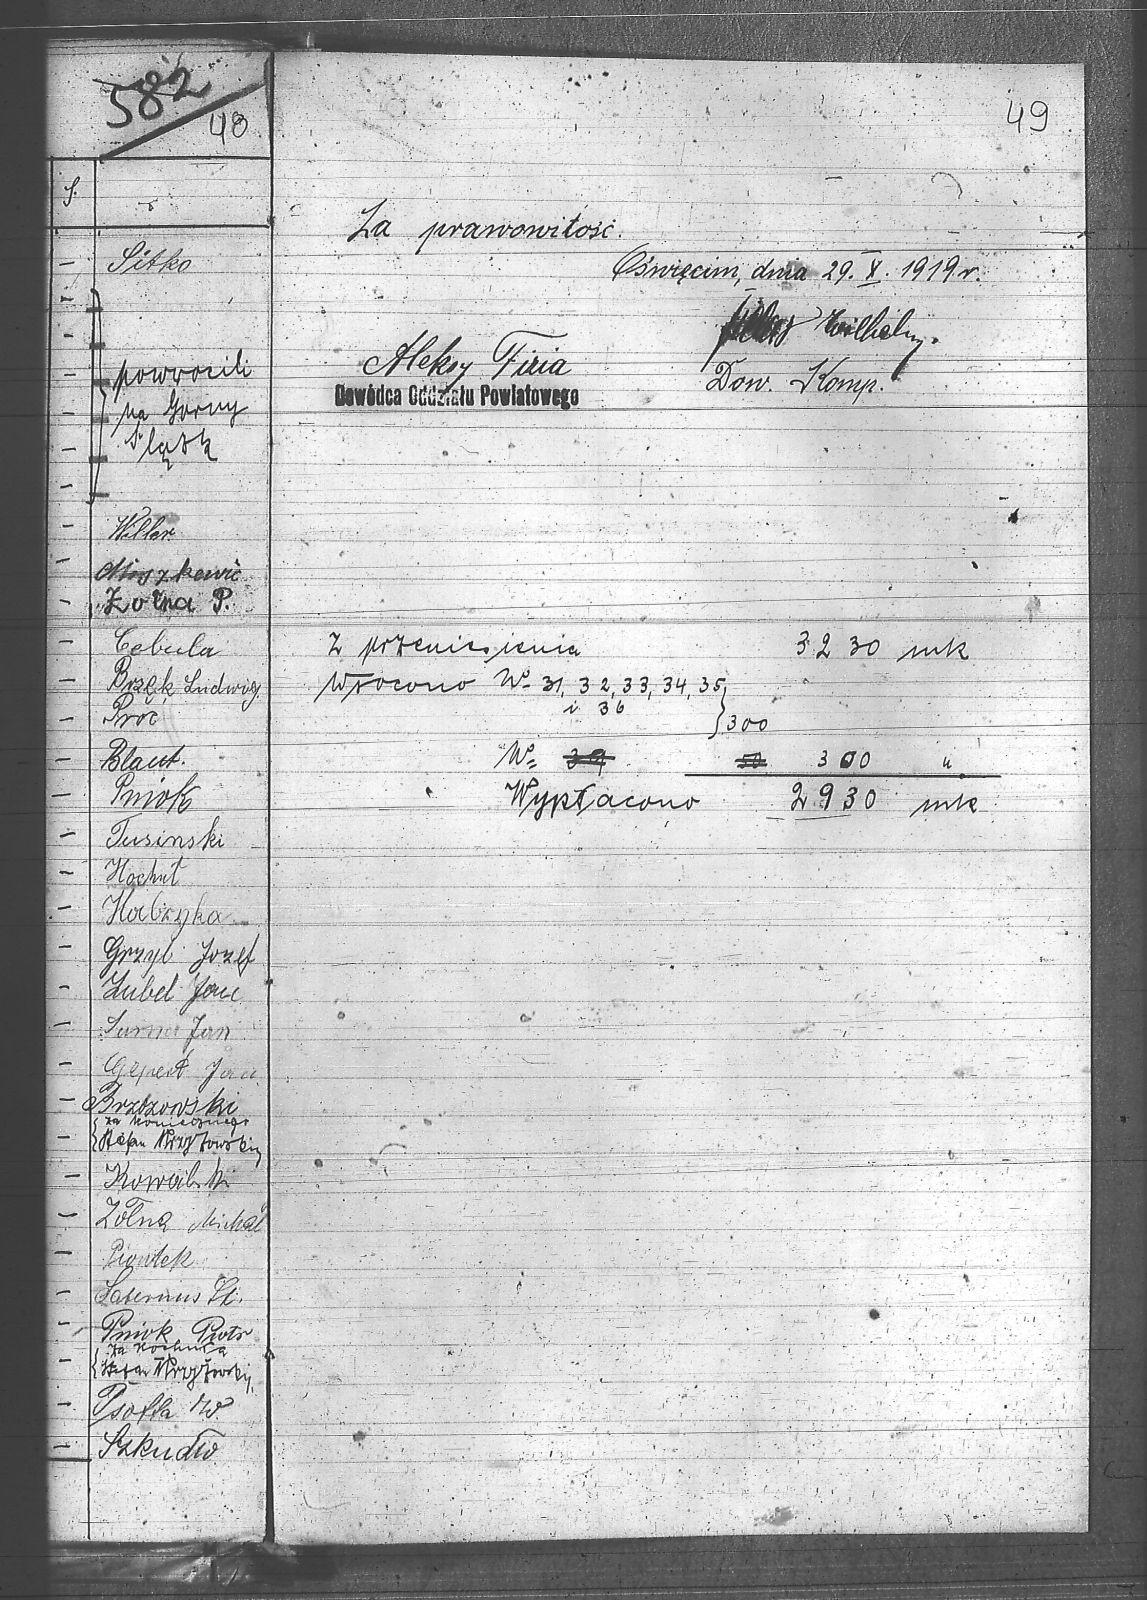 582
48
S.
Sitko
powrócili
na Gorny
Śląsk
Willer
Zołna P.
Cebula
Brzęk Ludwog.
Próc
Blaut.
Pniok
Tusinski
Hochuł
Habryka
Grzyb Jozef
Zubel Jan
Sarna Jan
Gepert Jan
Brzozowski
za Koniecznego
Stefan Krzyżowski
Kowalski
Żołna Michał
Piontek
Saternus St.
Pniok Piotr
za Kochnka
Stefan Krzyżowski
Psotta W.
Szkudło
49
Za prawowitość.
Oświęcim, dnia 29. X. 1919 r.
Wilhelm.
Aleksy Firia
Dow. Komp.
Dowódca Oddziału Powiatowego
Z przeniesienia 3230 mk
Wrocono No 31, 32, 33, 34, 35,
i 36 } 300
No 39 50 300 "
Wypłacono 2930 mk